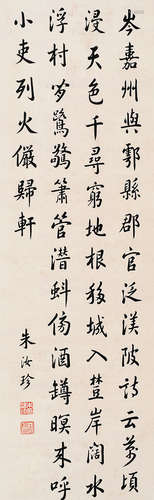 岑嘉州與鄠縣郡官泛渼陂詩云萬頃
浸天色千尋窮地根移城入岸闊水
浮村鷺驚簫管潛蚪傍酒罇暝来呼
小吏列火儼歸軒
朱汝珍